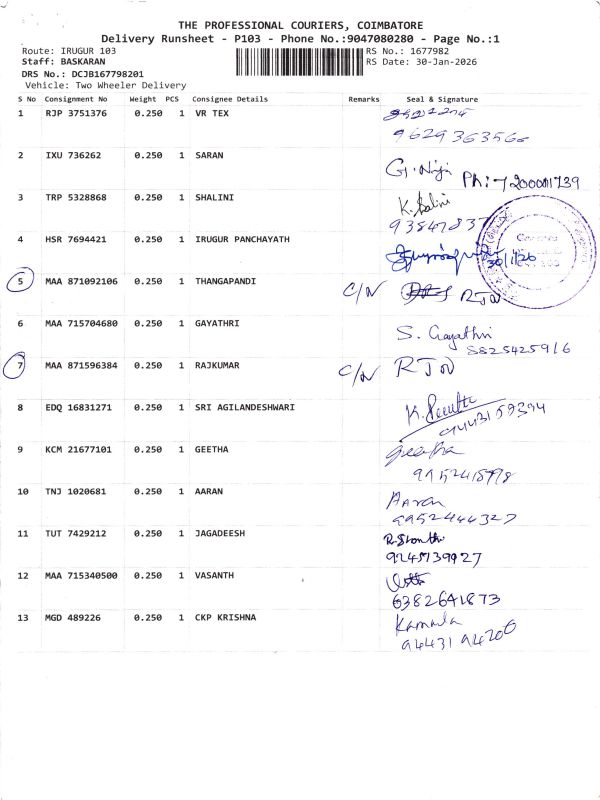 THE PROFESSIONAL COURIERS, COIMBATORE
Delivery Runsheet - P103 - Phone No.:9047080280 - Page No.:1
Route: IRUGUR 103
RS No.: 1677982
Staff: BASKARAN
RS Date: 30-Jan-2026
DRS No.: DCJB167798201
Vehicle: Two Wheeler Delivery
S No Consignment No Weight PCS Consignee Details Remarks Seal & Signature
1 RJP 3751376 0.250 1 VR TEX
2 IXU 736262 0.250 1 SARAN
3 TRP 5328868 0.250 1 SHALINI K. Salini
4 HSR 7694421 0.250 1 IRUGUR PANCHAYATH
30/1/26
5 MAA 871092106 0.250 1 THANGAPANDI C/N RTN
6 MAA 715704680 0.250 1 GAYATHRI S. Gayathri
8825425916
7 MAA 871596384 0.250 1 RAJKUMAR C/N RTN
8 EDQ 16831271 0.250 1 SRI AGILANDESHWARI
9 KCM 21677101 0.250 1 GEETHA geetha
10 TNJ 1020681 0.250 1 AARAN Aaran
9952444327
11 TUT 7429212 0.250 1 JAGADEESH
9245739927
12 MAA 715340500 0.250 1 VASANTH
6382641873
13 MGD 489226 0.250 1 CKP KRISHNA Kamala
9443194200